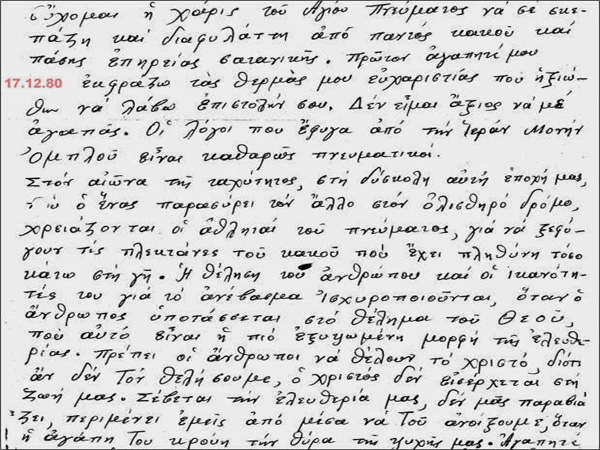 εὔχομαι ἡ χάρις τοῦ Ἁγίου Πνεύματος νά σέ σκε-
πάζη καί διαφυλάττη ἀπό παντός κακοῦ καί
πάσης ἐπηρείας σατανικῆς. Πρῶτον ἀγαπητέ μου
17.12.80 ἐκφράζω τάς θερμάς μου εὐχαριστίας πού ἠξιώ-
θην νά λάβω ἐπιστολήν σου. Δέν εἶμαι ἄξιος νά μέ
ἀγαπᾶς. Οἱ λόγοι που ἔφυγα ἀπό τήν Ἱεράν Μονήν
Ὀμπλοῦ εἶναι καθαρῶς πνευματικοί.
Στόν αἰῶνα τῆς ταχύτητος, στή δύσκολη αὐτή ἐποχή μας,
ὁ ἕνας παρασύρει τόν ἄλλο στόν ὀλισθηρό δρόμο,
χρειάζονται οἱ ἀθληταί τοῦ πνεύματος, γιά νά ξεφύ-
γουν τίς πλεκτάνες τοῦ κακοῦ πού ἔχει πληθύνη τόσο
κάτω στή γῆ. Ἡ θέληση τοῦ ἀνθρώπου καί οἱ ἱκανότη-
τές του γιά τό ἀνέβασμα ἰσχυροποιοῦνται, ὅταν ὁ
ἄνθρωπος ὑποτάσσεται στό θέλημα τοῦ Θεοῦ,
πού αὐτό εἶναι ἡ πιό ἐξυψωμένη μορφή τῆς ἐλευθε-
ρίας. Πρέπει οἱ ἄνθρωποι νά θέλουν τό χριστό, διότι
ἄν δέν Τόν θελήσουμε, ὁ χριστός δέν εἰσέρχεται στή
ζωή μας. Σέβεται τήν ἐλευθερία μας, δέν μᾶς παραβιά
ζει, περιμένει ἐμεῖς ἀπό μέσα νά Τοῦ ἀνοίξουμε, ὅταν
ἡ ἀγάπη Του κρούη τήν θύρα τῆς ψυχῆς μας. Ἀγαπητέ